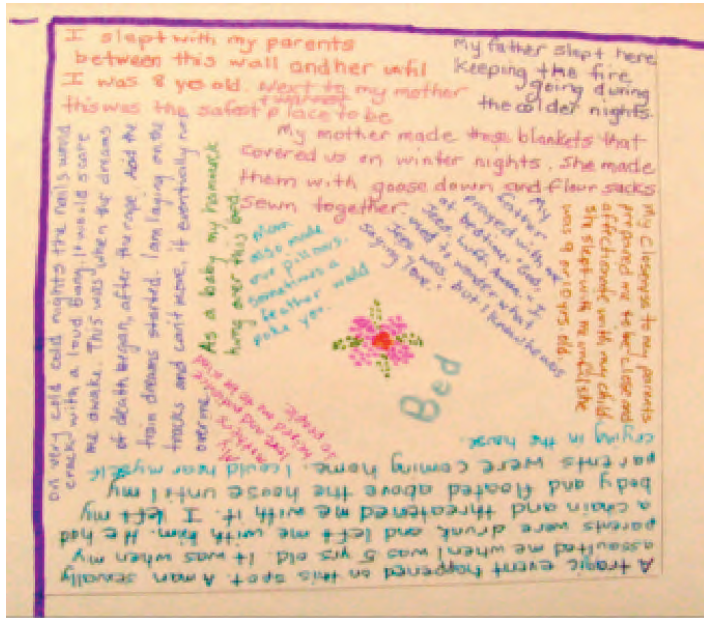 I slept with my parents
between this wall and her until
I was 8 yrs old. Next to my mother
this was the safest place to be
My father slept here
keeping the fire
going during
the colder nights.
My mother made these blankets that
covered us on winter nights. She made
them with goose down and flour sacks
sewn together.
on very cold cold nights the nails would
crack with a loud bang. It would scare
me awake. This was when the dreams
of death began, after the rape. And the
train dreams started. I am laying on the
tracks and can't move, it eventually
over me.
As a baby my hammock
hung over this bed.
Mom
also made
our pillows.
Sometimes a
feather would
poke you.
My
father
prayed with me
at bedtime.
I
used to wonder what
was, but I know he was
saying "love".
My closeness to my parents
prepared me to be close and
affectionate with my child
She slept with me until she
was 9 or 10 yrs old
Bed
My
mother's
love and
helped me to be kind
to people.
A tragic event happened on this spot. A man sexually
assaulted me when I was 5 yrs old. It was when my
parents were drunk and left me with him. He had
a chain and threatened me with it. I left my
body and floated above the house until my
parents were coming home. I could hear myself
crying in the house.